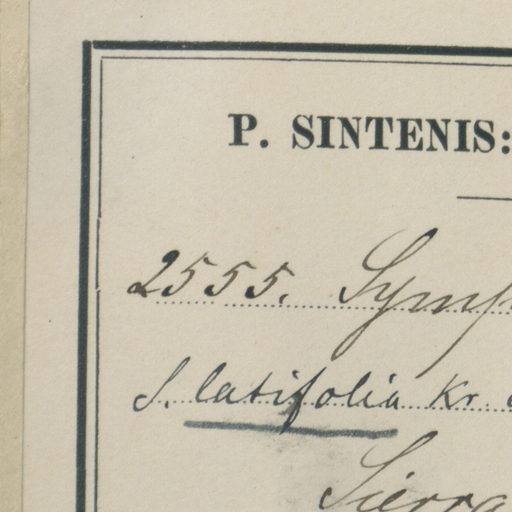 P. SINTENIS:
2555. Symp
S. latifolia Kr.
Sierra